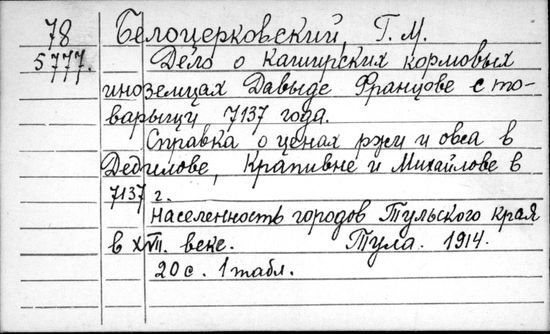 78
5777.
Белоцерковский Г. М.
Дело о каширских кормовых
иноземцах Давыде Францове с то-
варыщи 7137 года.
Справка о ценах ржи и овса в
Дедилове, Крапивне и Михайлове в
7137 г.
Населенность городов Тульского края
в XVII. веке. Тула. 1914.
20 с. 1 табл.